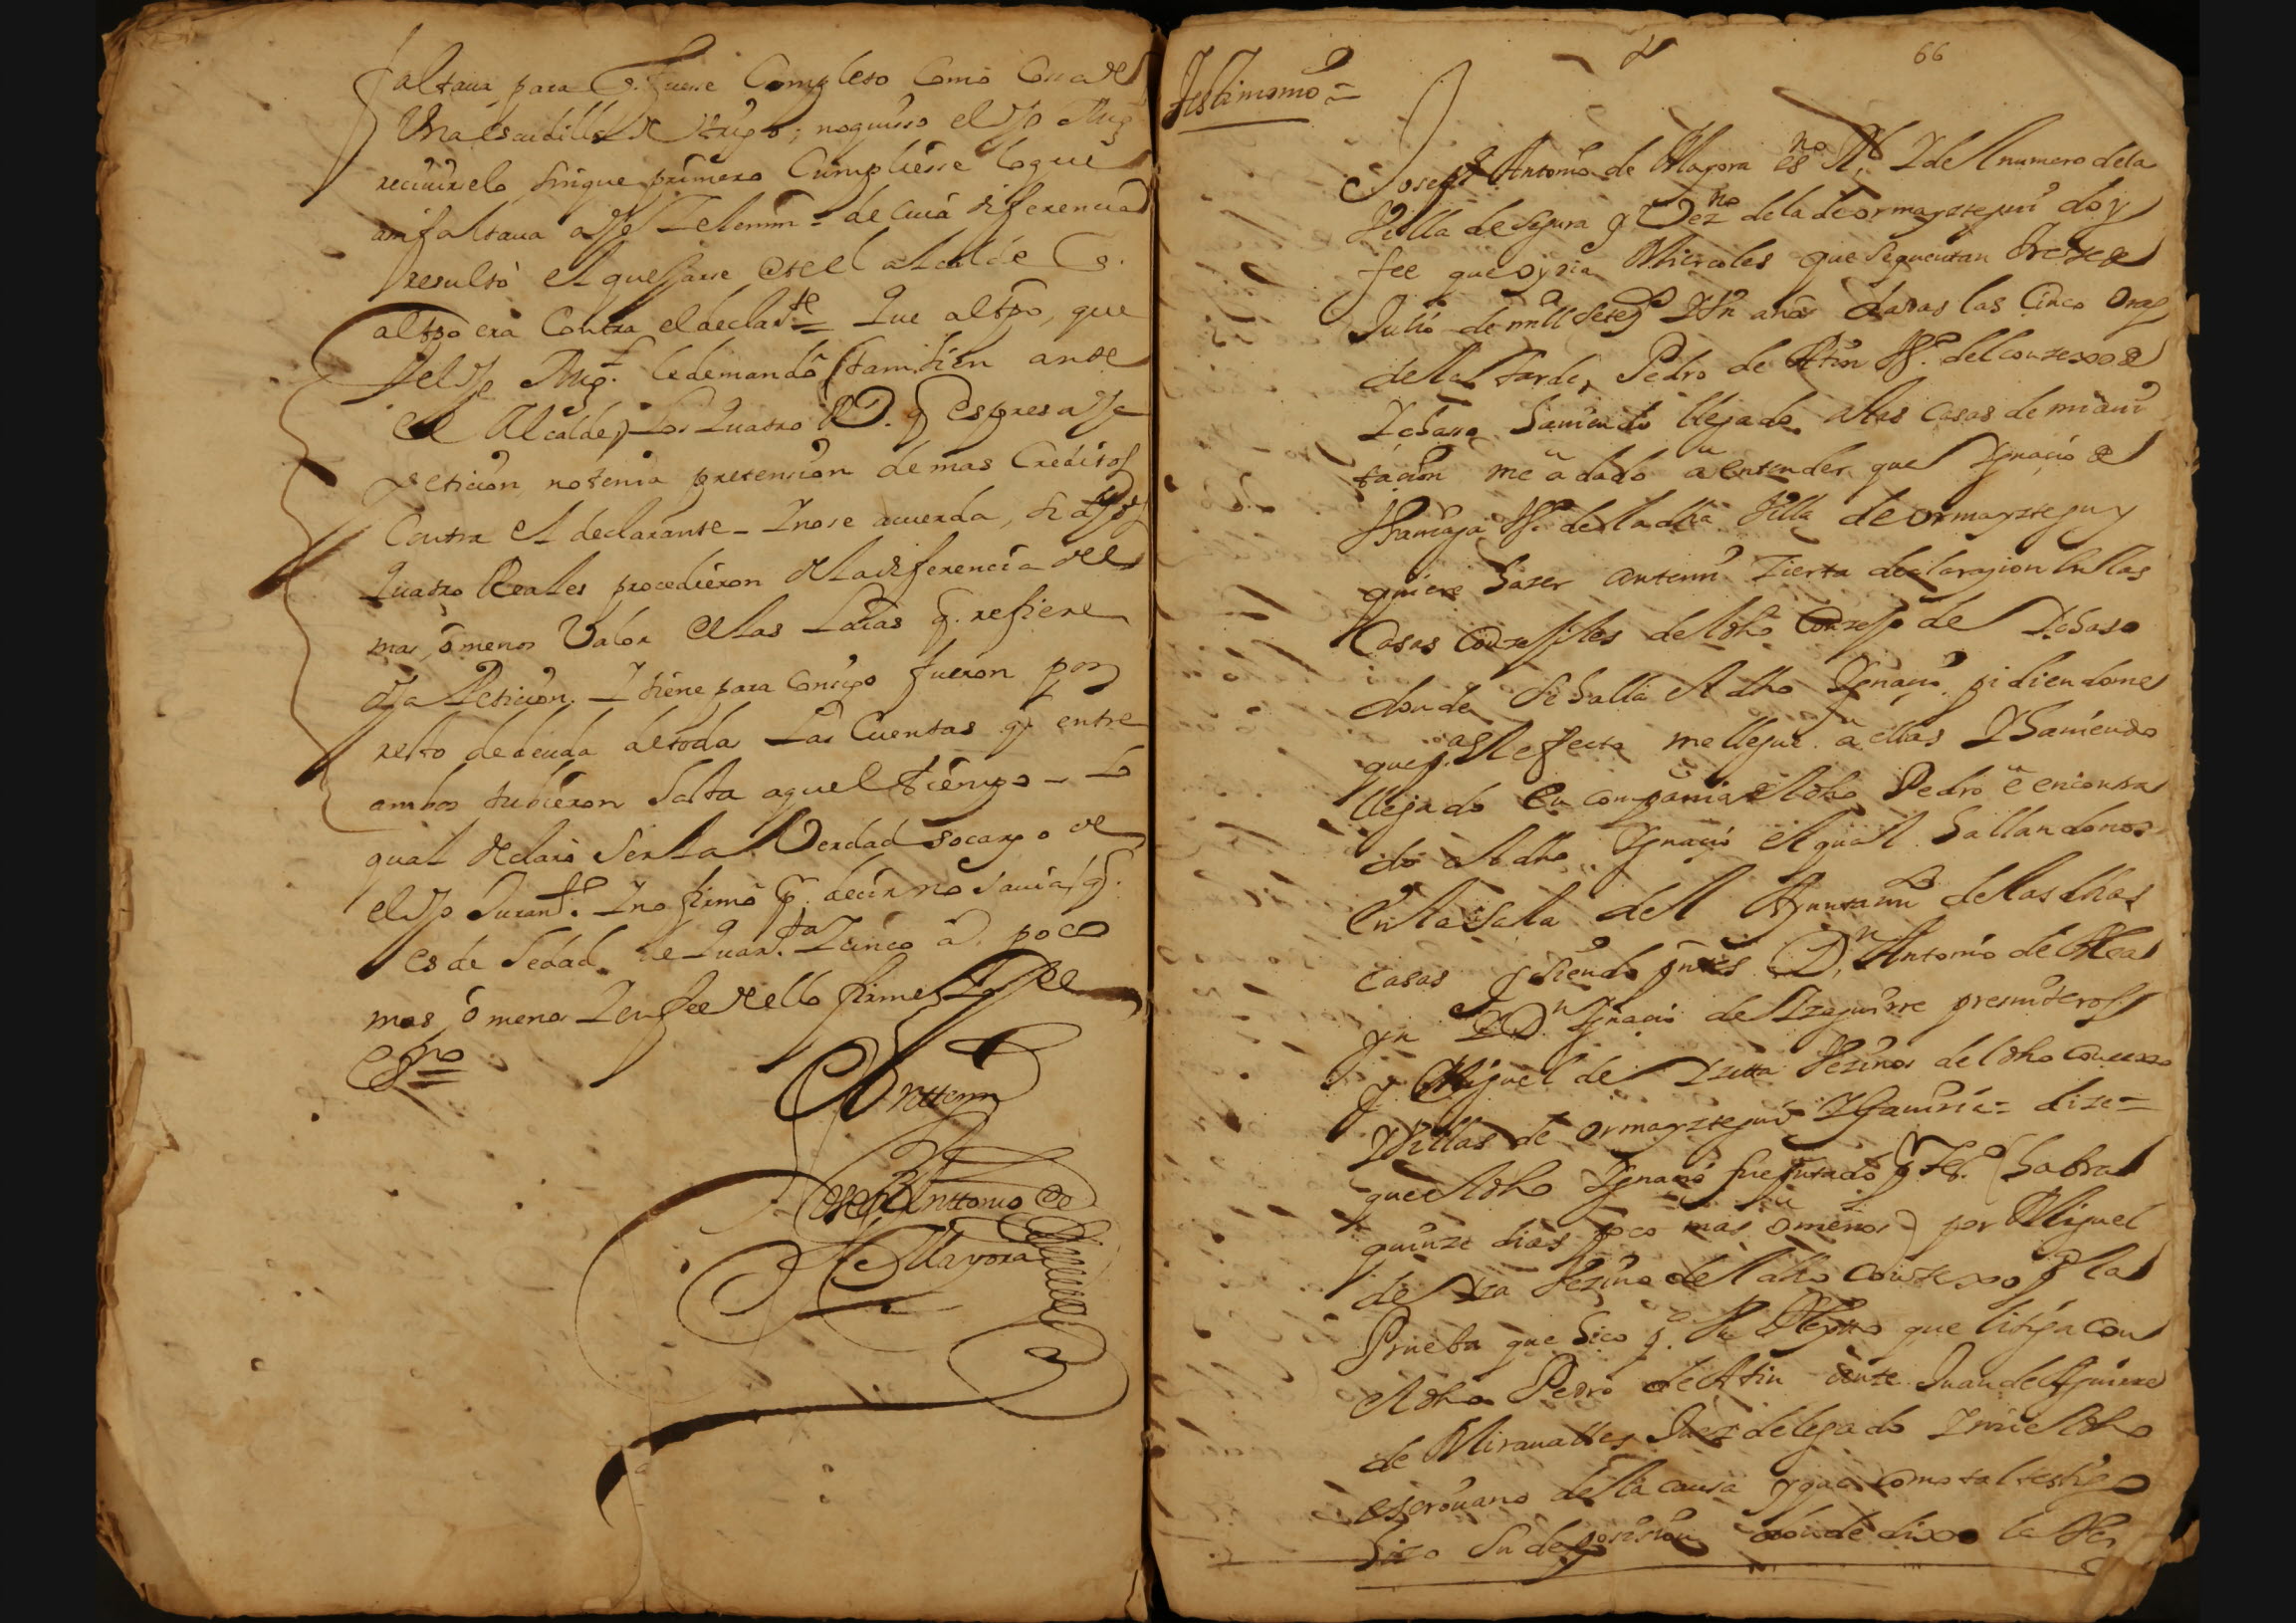 faltaua para q. fuese Completo Como Cosa de
Una escudilla de trigo; no quisso el dho Mig.
reciuirselo sin que primero Cumpliesse lo que
assi faltaua a dho Zelemin = de cuia diferencia
resulto el quejarse ante el alcalde
al tpo era Contra el declar.te = Que al tpo, que
el dho Mig.l le demandó tambien ante
el Alcalde, Los Quatro RD. q espresa dha
peticion, no tenia pretension de mas Creditos
Contra el declarante _ Y no se acuerda, si dhos
Quatro Reales procedieron de la diferencia del
mas, ó menos Valor de las q. refiere
dha Peticion. Y tiene para Consigo fueron por
resto de deuda de todas Las Cuentas q. entre
ambos tubieron hasta aquel tiempo _ Lo
qual declaro ser la Verdad so cargo de
el dho Juram.to Y no firmó p. decir no sauia, q.
es de hedad de Quar.ta Y cinco a. poco
mas, ó menos Y en fee de ello firme Yo el
Ess.no
Anttemi
Joseph Anttonio de
Mayora
66
Testimonio =
Joseph Antonio de Mayora es.no R.l Y del numero dela
Villa de Segura y Vez.no dela de ormayztegui doy
fee que oy dia Miercoles que se quentan treze de
Julio de mill setez.s Y Un años dadas las Cinco oras
dela tarde, Pedro de Atin V.o del conzexo de
Ychaso hauiendo llegado a las Casas de mi aui
tacion me a dado a entender que Ygnacio de
V.o de la dha Villa de ormayztegui
quiere hazer antemi zierta declarazion en las
Casas Conzejiles del dho Conzejo de Ychaso
donde se halla el dho Ygnacio, pidiendome
que p.a el efecto me llegue a ellas Y hauiendo
llegado en compania del dho Pedro e encontra
do al dho Ygnacio el qual hallandonos
en la Sala del Ayuntam.to de las dhas
Casas y siendo press.tes D.n Antonio de
Y D.n Ygnacio de Yzaguirre presuiteros
y Miguel de Vezinos del dho Conzexo
Y Villas de ormayztegui Y Gauiria = dize =
que el dho Ygnacio fue jurado p. t.o (habra
quinze dias poco mas o menos) por Miguel
de Vezino del dho Conzexo p.a la
Prueba que hico p.a su Pleytto que litiga con
el dho Pedro de Atin ante Juan de Aguirre
de Mirauallles Juez delegado Y mi el dho
escriuano de la causa y que como tal testigo
hizo su deposision donde dixo la Ver